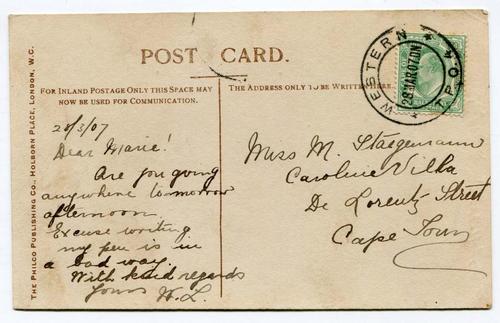 POST CARD.
FOR INLAND POSTAGE ONLY THIS SPACE MAY
NOW BE USED FOR COMMUNICATION.
THE ADDRESS ONLY TO BE WRITTEN HERE.
THE PHILCO PUBLISHING CO., HOLBORN PLACE, LONDON, W.C.
WESTERN
T.P.O. 4
28 MAR 07 DN
Dear Marie!
Are you going
anywhere tomorrow
afternoon.
Excuse writing
my pen is in
a bad way.
With kind regards
Yours W.L.
Miss M. Stegmann
Caroline Villa
De Lorentz Street
Cape Town